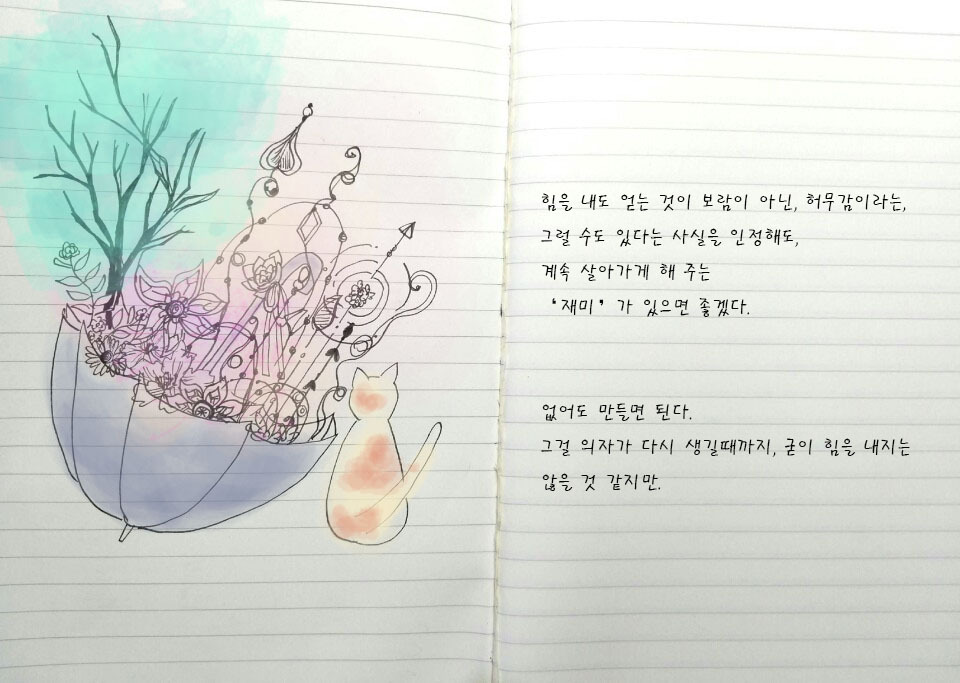 힘을 내도 얻는 것이 보람이 아닌, 허무감이라는,
그럴 수도 있다는 사실을 인정해도,
계속 살아가게 해 주는
‘재미’가 있으면 좋겠다.
없어도 만들면 된다.
그걸 의자가 다시 생길때까지, 굳이 힘을 내지는
않을 것 같지만.